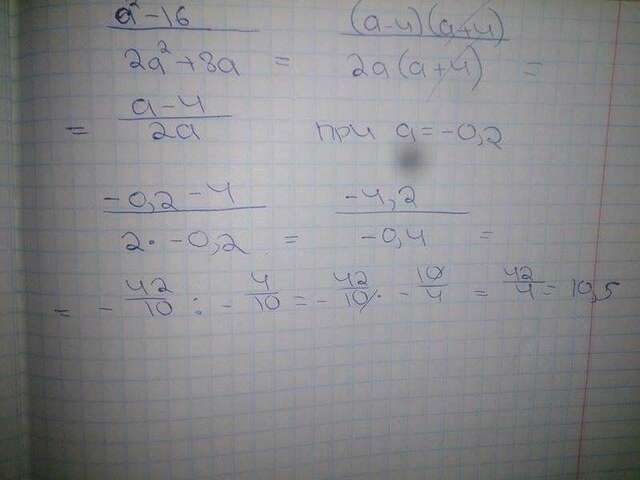 a² - 16 / 2a² + 8a = (a-4)(a+4) / 2a(a+4) =
= a-4 / 2a при a = -0,2
-0,2 - 4 / 2 · -0,2 = -4,2 / -0,4 =
= - 42/10 : - 4/10 = - 42/10 · - 10/4 = 42/4 = 10,5